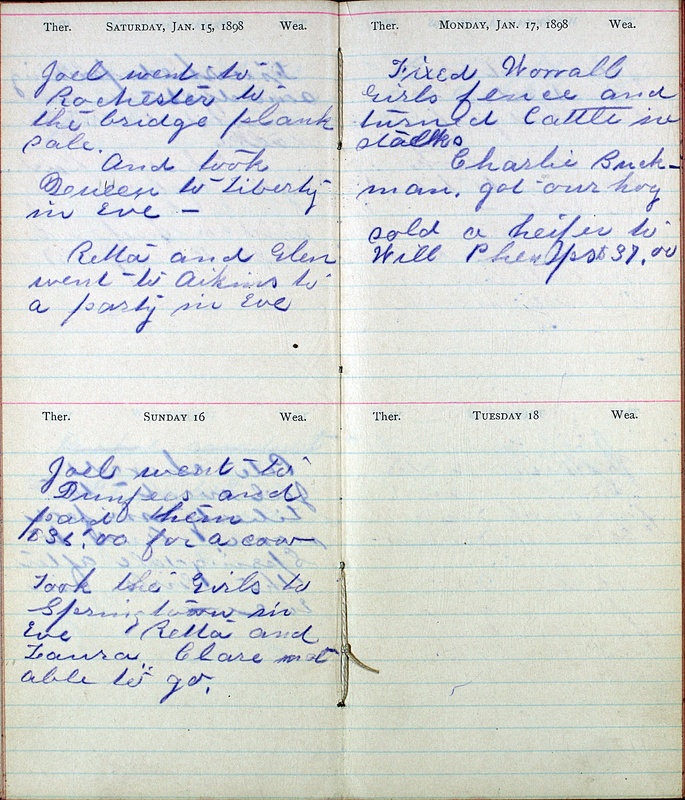 Ther. SATURDAY, JAN. 15, 1898 Wea.
Joel went to
Rochester to
the bridge plank
sale.
And took
to Liberty
in Eve —
Retta and Glen
went to Aikins to
a party in Eve
Ther. SUNDAY 16 Wea.
Joel went to
and
paid them
for a cow
Took the Girls to
Springtown in
Eve Retta and
Laura. Clare not
able to go.
Ther. MONDAY, JAN. 17, 1898 Wea.
Fixed Worrall
Girls fence and
turned Cattle in
stalks
Charlie Buck-
man. got our hog
sold a heifer to
Will Phenlps $37.00
Ther. TUESDAY 18 Wea.